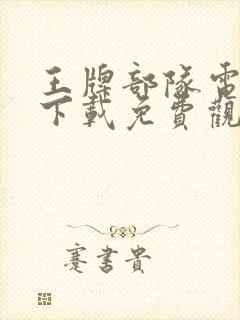 王牌部隊電
下載免費觀
蹇書貴